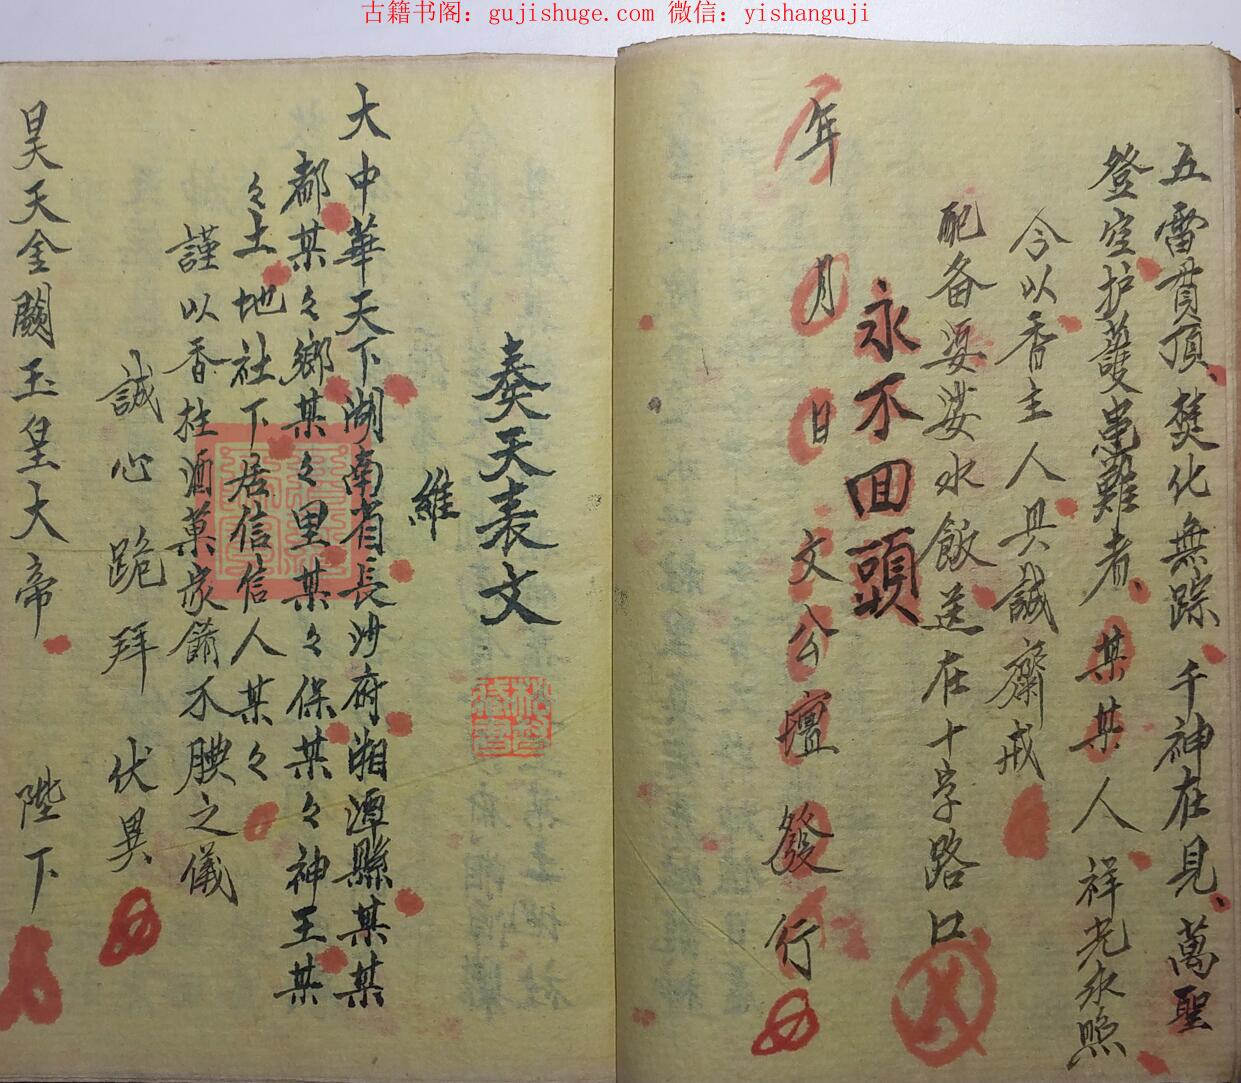 古籍书阁：gujishuge.com 微信：yishanguji
五雷貫頂、焚化無踪、千神在見、萬聖
登空护護患難者、某某人祥光永照
今以香主人具誠齋戒
配备婆娑水飯送在十字路口
永不回頭
年月日文公壇發行
奏天表文
維
大中華天下湖南省長沙府湘潭縣某某
都某々鄉某々里某々保某々神王某
々土地社下居信信人某々
謹以香炷酒菓炭餚不腆之儀
誠心跪拜伏異
昊天金闕玉皇大帝陛下